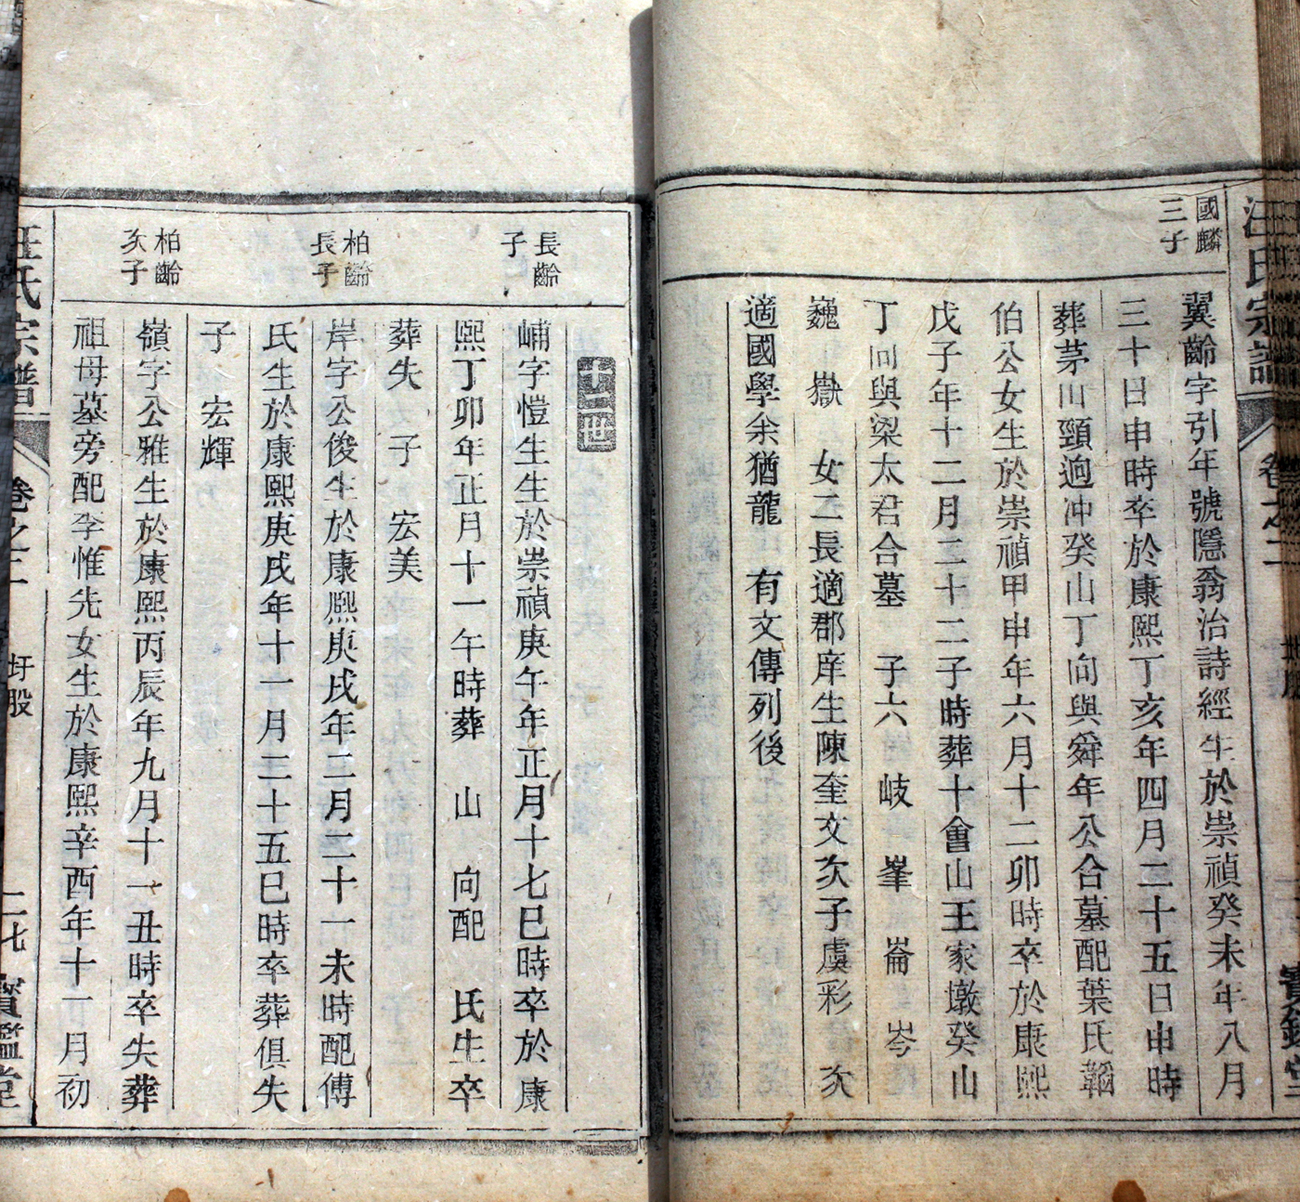 國麟
三子
翼齡字引年號隱翁治詩經生於崇禎癸未年八月
三十日申時卒於康熙丁亥年四月二十五日申時
葬茅川頸逈冲癸山丁向與舜年公合墓配葉氏韜
伯公女生於崇禎甲申年六月十二卯時卒於康熙
戊子年十二月二十二子時葬十會山王家墩癸山
丁向與梁太君合墓 子六 岐 峯 崙 岑
巍 嶽 女二長適郡庠生陳奎文次子虞彩 次
適國學余猶龍 有文傳列後
十一世
長齡
子
峬字愷生生於崇禎庚午年正月十七巳時卒於康
熙丁卯年正月十一午時葬 山 向配 氏生卒
葬失 子 宏美
柏齡
長子
岸字公俊生於康熙庚戌年二月二十一未時配傅
氏生於康熙庚戌年十一月二十五巳時卒葬俱失
子 宏輝
柏齡
次子
嶺字公雅生於康熙丙辰年九月十一丑時卒失葬
祖母墓旁配李惟先女生於康熙辛酉年十一月初
汪氏宗譜
卷之二
圩股
二七
寶鑑堂